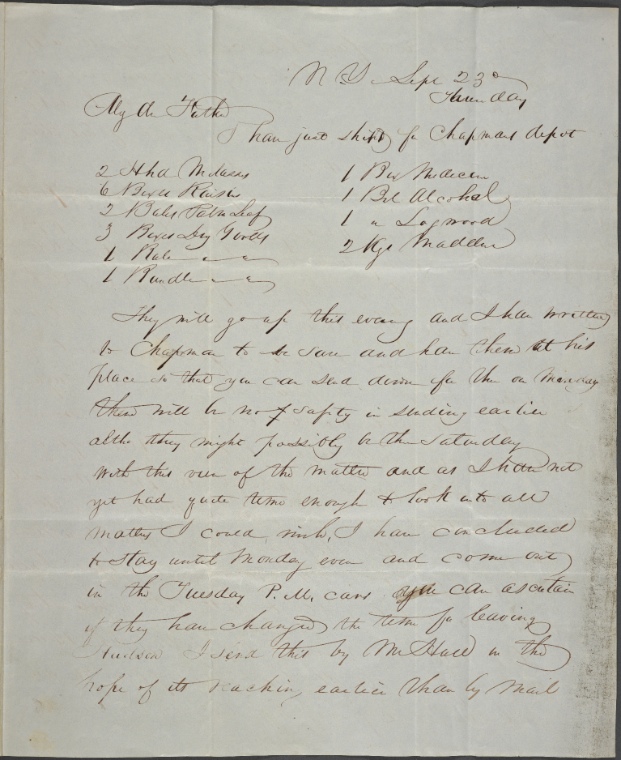 N Y. Sept 23d
Thursday
My Dr Father
I have just shipd for Chapmans depot
2 Hhd Molasses
6 Boxes Raisins
2 Bales Palm Leaf
3 Boxes Dry Goods
1 Bale
1 Bundle
1 Box Medicine
1 Bbl Alcohol
1 " Logwood
2 Kgs Madder
They will go up this evening and I have written
to Chapman to be sure and have them at his
place so that you can send down for them on Monday
there will be no safety in sending earlier
altho they might possibly be there Saturday
with this view of the matter and as I have not
yet had quite time enough to look into all
matters I could wish, I have concluded
to stay until Monday even and come out
in the Tuesday P.M. cars you can ascertain
if they have changed the time for leaving
Hudson I send this by Mr Hall in the
hope of its reaching earlier than by mail